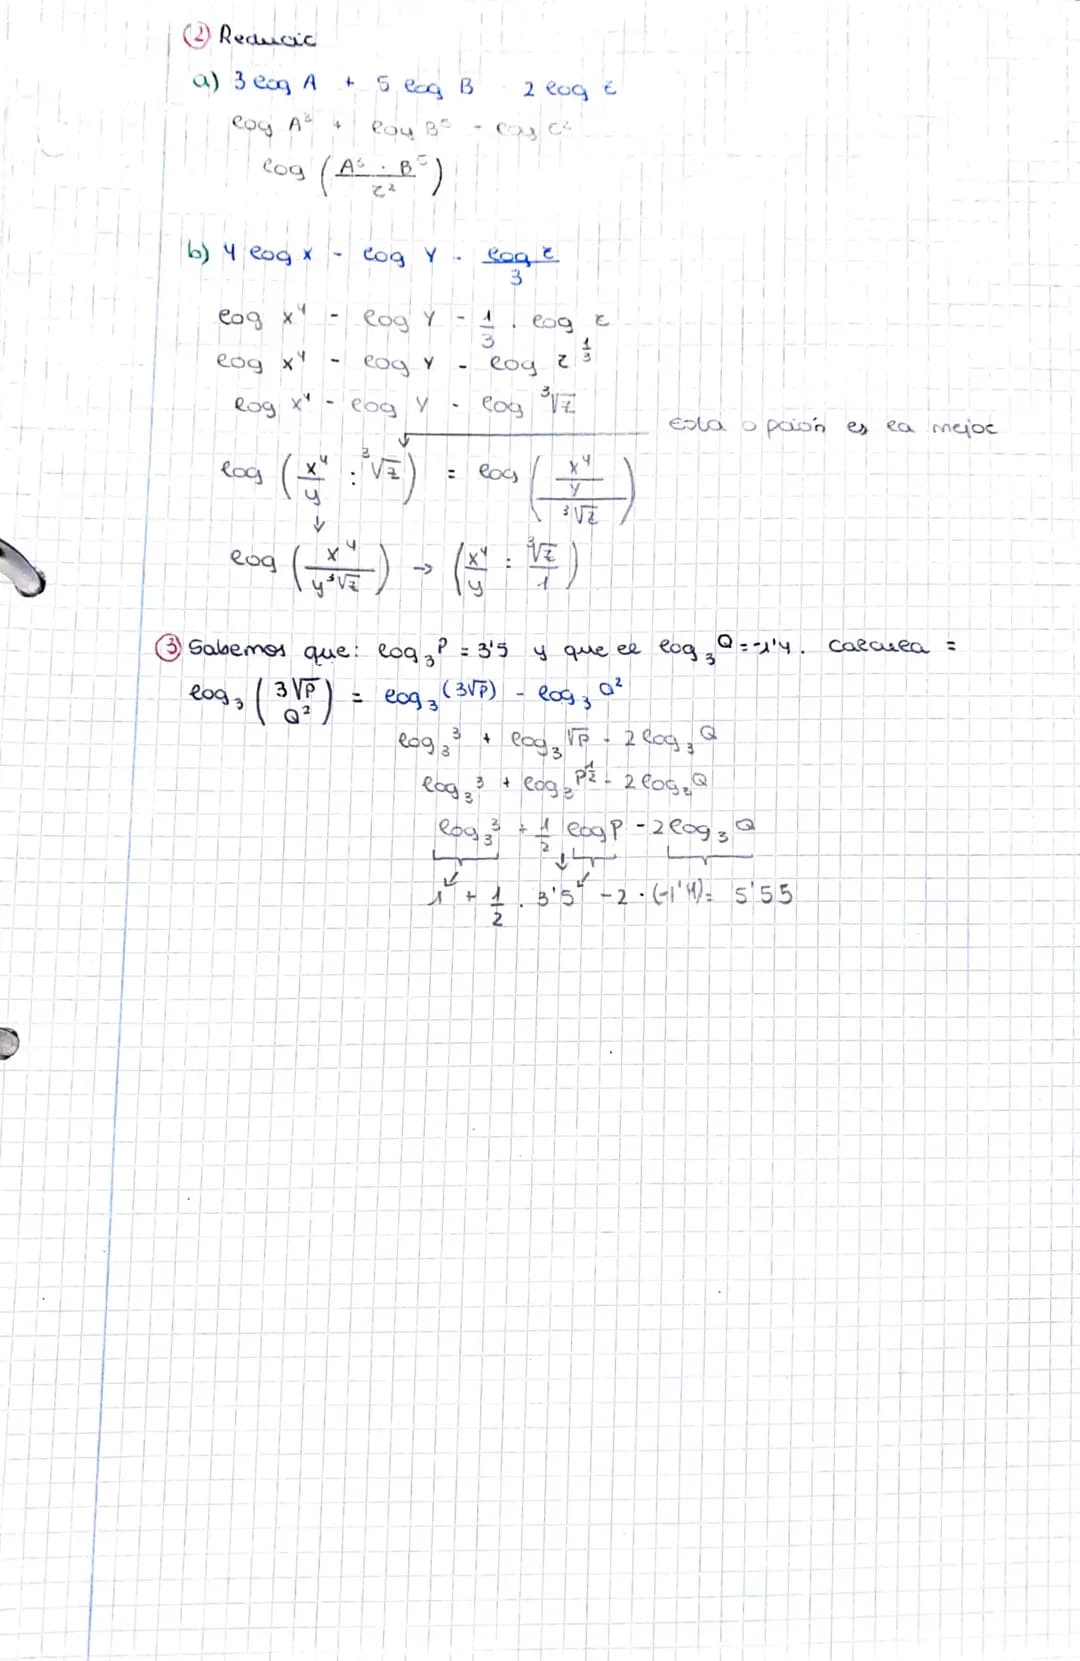 ② Reducir
a) 3 log A + 5 log B 2 log C
log A³ + log B⁵ - log C²
log (A³ · B⁵ / C²)
b) 4 log x - log Y - log z / 3
log x⁴ - log Y - 1/3 · log z
log x⁴ - log Y - log z^(1/3)
log x⁴ - log Y - log ³√z
Esta opción es la mejor
log (x⁴/y : ³√z) = log ((x⁴/y) / ³√z)
↓
log (x⁴ / y³√z) → (x⁴/y : ³√z/1)
③ Sabemos que: log₃ P = 3'5 y que el log₃ Q = -1'4. Calcula =
log₃ (3√P / Q²) = log₃ (3√P) - log₃ Q²
log₃ 3 + log₃ √P - 2 log₃ Q
log₃ 3 + log₃ P^(1/2) - 2 log₃ Q
log₃ 3 + 1/2 log P - 2 log₃ Q
1 + 1/2 · 3'5 - 2 · (-1'4) = 5'55